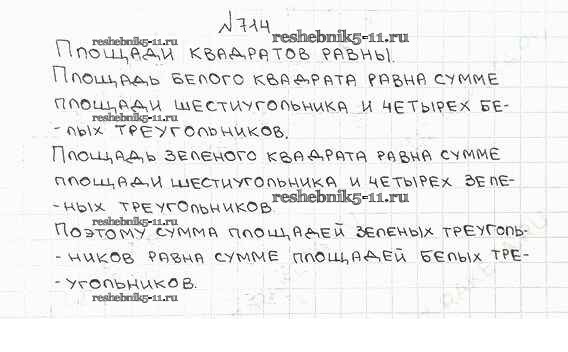 №714
reshebnik5-11.ru reshebnik5-11.ru
Площади квадратов равны.
Площадь белого квадрата равна сумме
площади шестиугольника и четырех бе-
reshebnik5-11.ru
-лых треугольников.
Площадь зеленого квадрата равна сумме
площади шестиугольника и четырех зеле-
reshebnik5-11.ru
-ных треугольников.
reshebnik5-11.ru
Поэтому сумма площадей зеленых треуголь-
-ников равна сумме площадей белых тре-
-угольников.
reshebnik5-11.ru